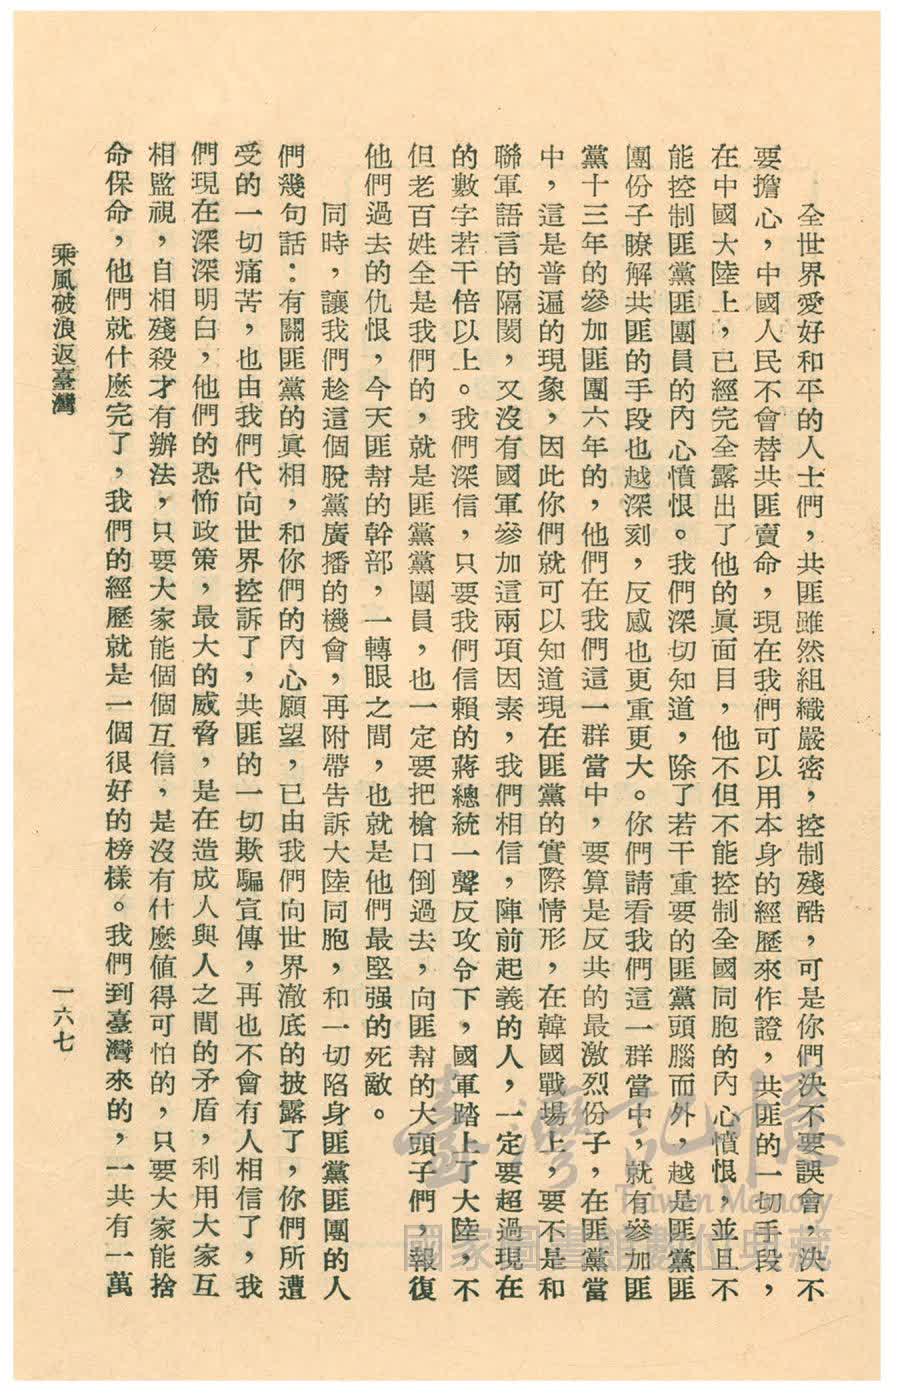 全世界愛好和平的人士們，共匪雖然組織嚴密，控制殘酷，可是你們決不要誤會，決不
要擔心，中國人民不會替共匪賣命，現在我們可以用本身的經歷來作證，共匪的一切手段，
在中國大陸上，已經完全露出了他的眞面目，他不但不能控制全國同胞的內心憤恨，並且不
能控制匪黨匪團員的內心憤恨。我們深切知道，除了若干重要的匪黨頭腦而外，越是匪黨匪
團份子瞭解共匪的手段也越深刻，反感也更重更大。你們請看我們這一群當中，就有參加匪
黨十三年的參加匪團六年的，他們在我們這一群當中，要算是反共的最激烈份子，在匪黨當
中，這是普遍的現象，因此你們就可以知道現在匪黨的實際情形，在韓國戰場上，要不是和
聯軍語言的隔閡，又沒有國軍參加這兩項因素，我們相信，陣前起義的人，一定要超過現在
的數字若干倍以上。我們深信，只要我們信賴的蔣總統一聲反攻令下，國軍踏上了大陸，不
但老百姓全是我們的，就是匪黨黨團員，也一定要把槍口倒過去，向匪幇的大頭子們，報復
他們過去的仇恨，今天匪幇的幹部，一轉眼之間，也就是他們最堅强的死敵。
同時，讓我們趁這個脫黨廣播的機會，再附帶告訴大陸同胞，和一切陷身匪黨匪團的人
們幾句話：有關匪黨的眞相，和你們的內心願望，已由我們向世界澈底的披露了，你們所遭
受的一切痛苦，也由我們代向世界控訴了，共匪的一切欺騙宣傳，再也不會有人相信了，我
們現在深深明白，他們的恐怖政策，最大的威脅，是在造成人與人之間的矛盾，利用大家互
相監視，自相殘殺才有辦法，只要大家能個個互信，是沒有什麼値得可怕的，只要大家能捨
命保命，他們就什麼完了，我們的經歷就是一個很好的榜樣。我們到臺灣來的，一共有一萬
乘風破浪返臺灣
一六七
臺灣記憶
Taiwan Memory
國家圖書館數位典藏